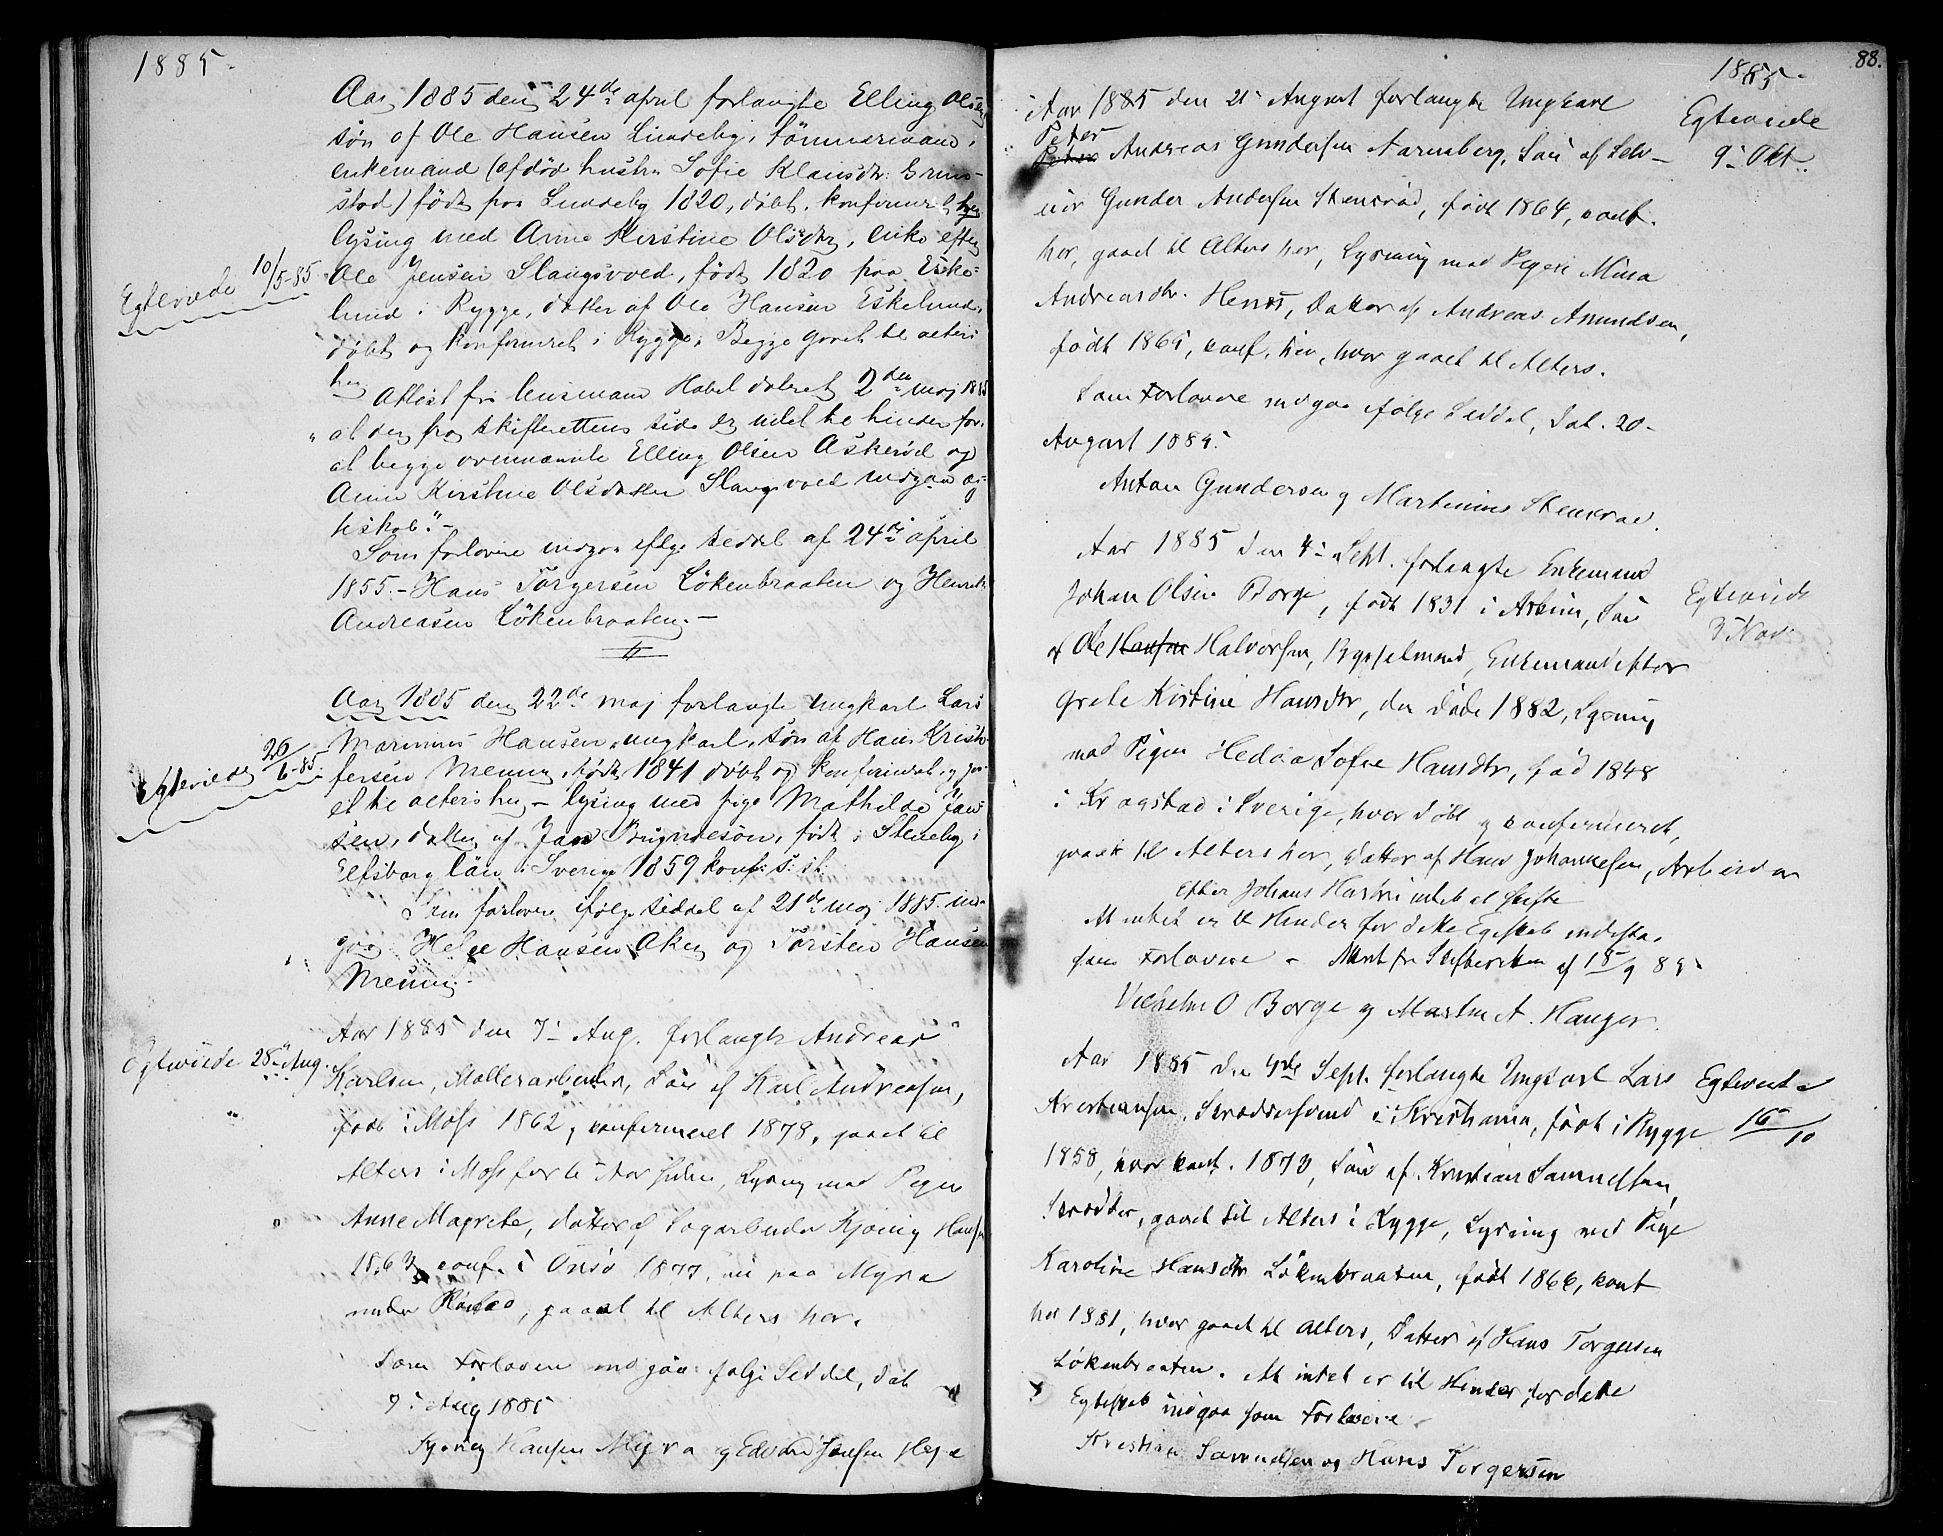 1885.
Aar 1885 den 24de april forlangte Elling Olsen
søn af Ole Hansen Lundeby, Tömmermand,
enkemand (afdød hustru Sofie Klausdtr:
stad) født paa Lundeby 1820, døbt, konfirmeret her
lysing med Anne Kirstine Olsdtr, enke efter
Ole Jensen Slangsvold, født 1820 paa Eske-
lund i Rygge, datter af Ole Hansen Eskelund,
døbt og konfirmeret i Rygge, Begge gaaet til alters
her
Egteviede 10/5-85
Attest fra lensmand Habel dateret 2den maj 1885
"at der fra skifterettens side er intet til hinder for,
at begge ovennævnte Elling Olsen Askerød og
Anne Kirstine Olsdatter Slangsvold indgaa æg-
teskab." -
Som forlovere indgaa ifølge seddel af 24de april
1855. - Hans Torgersen Løkenbraaten og Henrik
Andreasen Løkenbraaten. -
Aar 1885 den 22de maj forlangte ungkarl Lars
Marinius Hansen, ungkarl, søn af Hans Krist-
fersen Menny, født 1841 døbt og konfirmeret, og ga-
et til alters her - lysing med pige Mathilde Jan-
sen, datter af Jan Brynielsön, født i Steneby i
Elfsborg län i Sverige 1859 konf: s: st:
Egteviede 26/6-85.
Som forlovere ifølge seddel af 21de maj 1885. ind-
gaa Helge Hansen Aken og Torsten Hansen
Menny.
Aar 1885 den 7- Aug. forlangte Andreas
Karlsen, Møllerarbeider, Søn af Karl Andreasen,
født i Moss 1862, konfirmeret 1878, gaaet til
Alters i Moss for Aar siden, Lysning med Pigen
Anne Magrete, datter af Sagarbeider Hansen
1863, conf. i Onsö 1877, nu paa Myra
under, gaaet til Alters her.
Egteviede 28- Aug.
Som Forlovere indgaa ifølge Seddel, dat.
9- Aug 1885
Hansen Myra og Edvard Jensen
88.
1885.
Aar 1885 den 21- August forlangte Ungkarl
Peter
Andreas Gundersen Aarnsberg, Søn af Selv-
eier Gunder Andersen Stensrød, født 1864, conf.
her, gaaet til Alters her, Lysning med Pigen Mina
Andreasdtr. Henes, Datter af Andreas Amundsen,
født 1865, conf. her, hvor gaaet til Alters.
Egteviede
9- Okt.
Som Forlovere indgaa ifølge Seddel, Dat. 20-
August 1885.
Anton Gundersen og Martinius Stensrød.
Aar 1885 den 4- Sept. forlangte Enkemand
Johan Olsen Borge, født 1831 i Askim, Søn
af Ole Hansen Halvorsen, Bysselmand, Enkemand efter
Grete Kirstine Hansdtr, der døde 1882, Lysning
med Pigen Hedda Sofie Hansdtr, född 1848
i Krogstad i Sverige, hvor døbt og konfirmeret,
gaaet til Alters her, Datter af Hans Johannesen, Arbeider
Egteviede
3 Nov.
Efter Johans Hustru intet at skifte
At intet er til Hinder for dette Egteskab indestaa
som Forlovere - Attest fra Skifteretten af 15/9 85
Vilhelm O Borge og Martin A. Hauger.
Aar 1885 den 4de Sept. forlangte Ungkarl Lars
Kristiansen, Skræddersvend i Kristiania, født i Rygge
1858, hvor konf. 1873, Søn af Kristian Samuelsen,
Skrædder, gaaet til Alters i Rygge, Lysning med Pige
Karoline Hansdtr Løkenbraaten, født 1866, konf
her 1881, hvor gaaet til Alters, Datter af Hans Torgersen
Løkenbraaten. At intet er til Hinder for dette
Egteskab indgaa som Forlovere
Egteviede
16/10
Kristian Samuelsen og Hans Torgersen